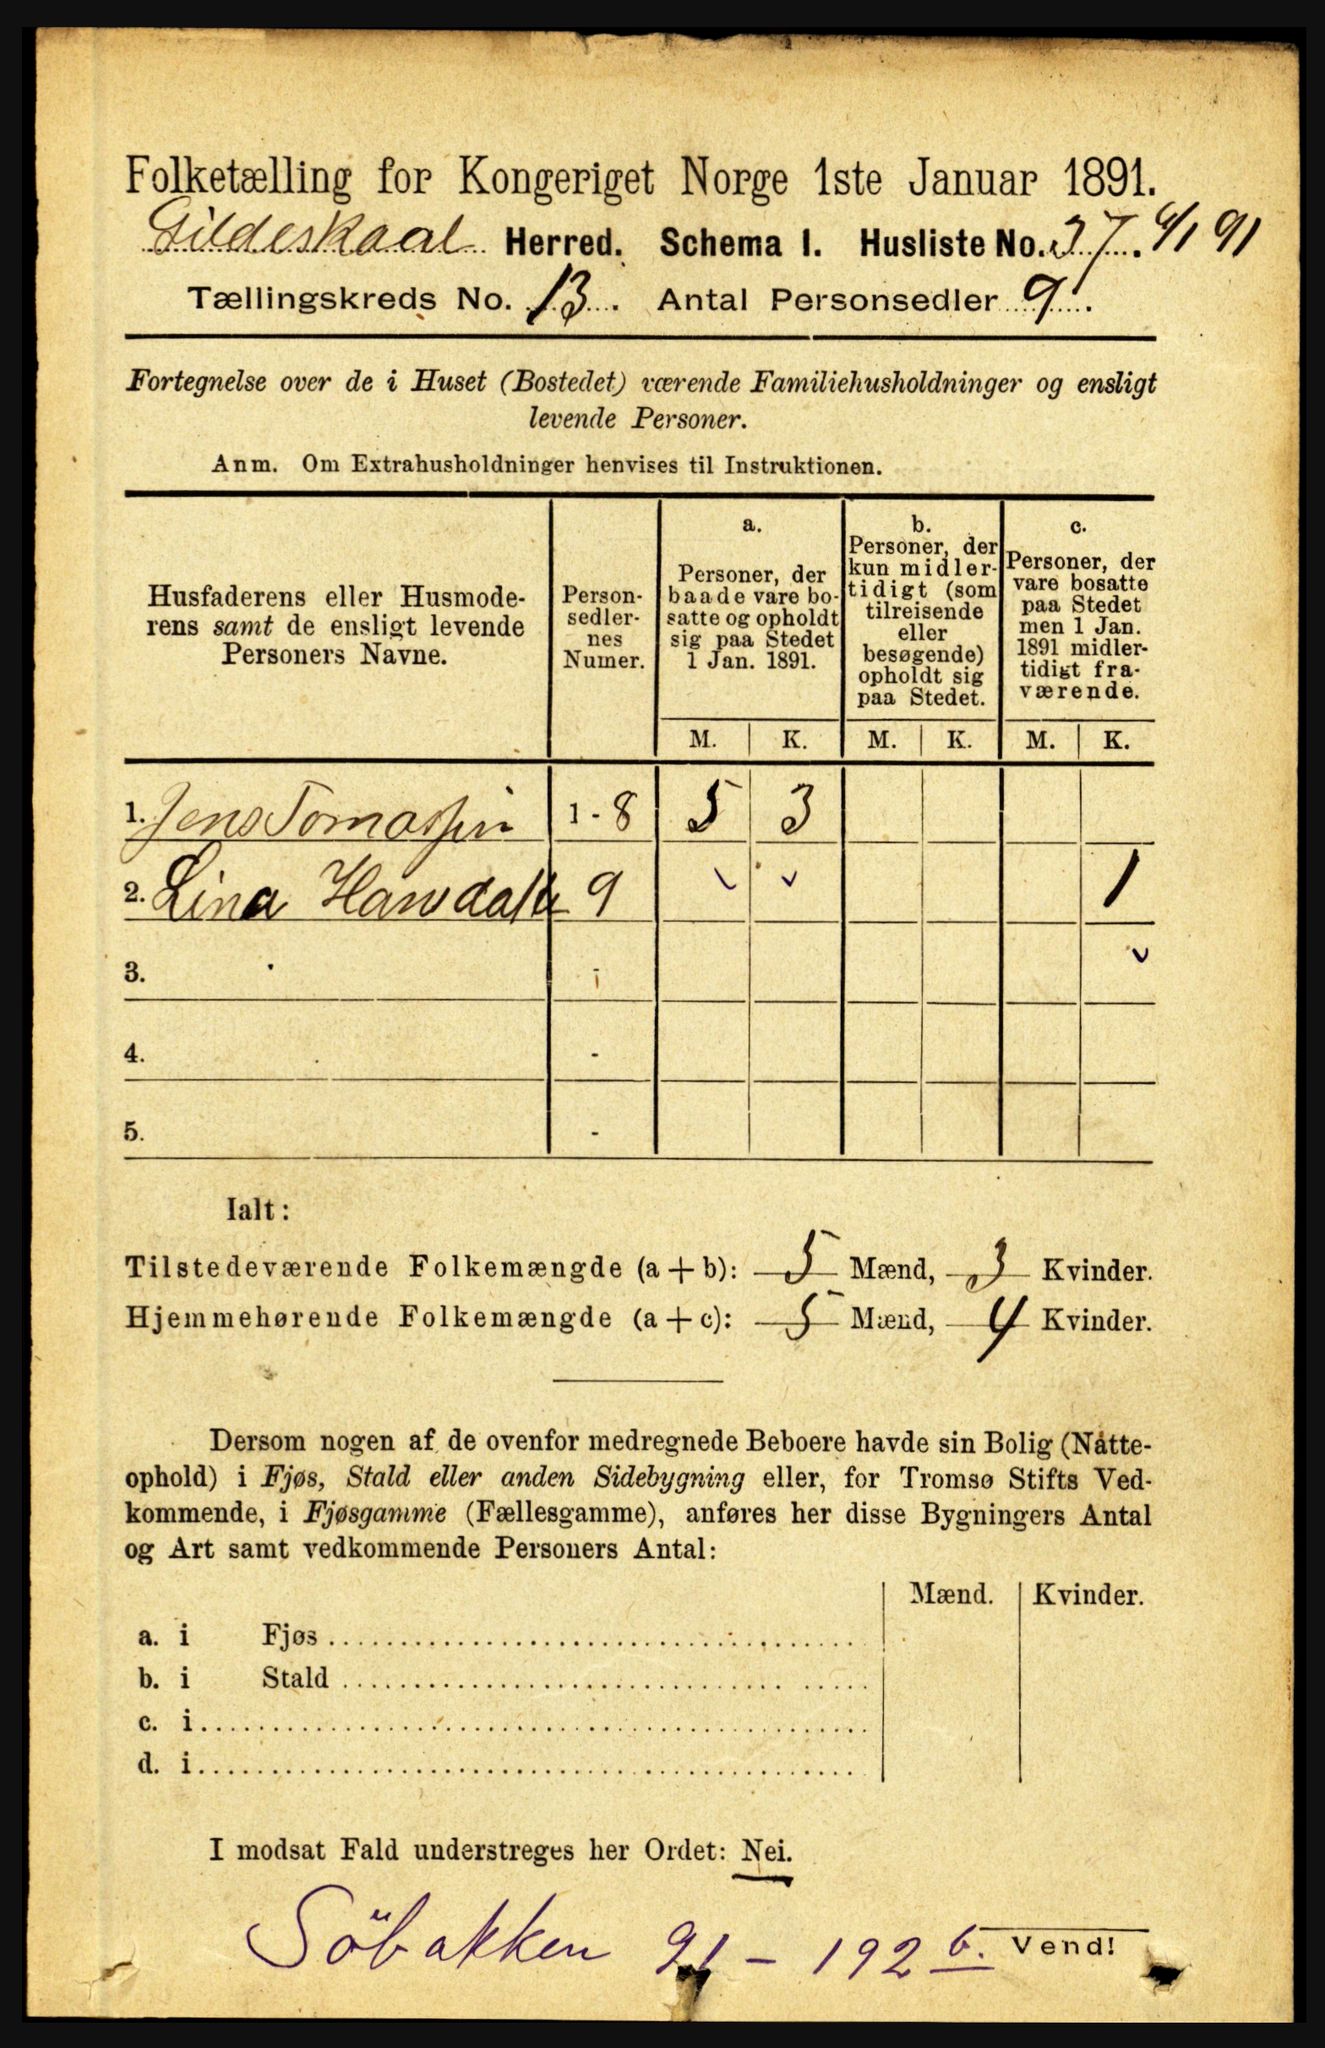 Folketælling for Kongeriget Norge 1ste Januar 1891.
Gildeskaal Herred. Schema 1. Husliste No. 37. 4/1 91
Tællingskreds No. 13. Antal Personsedler 9.
Fortegnelse over de i Huset (Bostedet) værende Familiehusholdninger og ensligt
levende Personer.
Anm. Om Extrahusholdninger henvises til Instruktionen.
Husfaderens eller Husmode-
rens samt de ensligt levende
Personers Navne.
Person-
sedler-
nes
Numer.
a.
Personer, der
baade vare bo-
satte og opholdt
sig paa Stedet
1 Jan. 1891.
b.
Personer, der
kun midler-
tidigt (som
tilreisende
eller
besøgende)
opholdt sig
paa Stedet.
c.
Personer, der
vare bosatte
paa Stedet
men 1 Jan.
1891 midler-
tidigt fra-
værende.
M. K. M. K. M. K.
1. Jens Tomassen 1 - 8 5 3
2. Lina 9 1
3. -
4. -
5. -
Ialt:
Tilstedeværende Folkemængde (a + b): 5 Mænd, 3 Kvinder.
Hjemmehørende Folkemængde (a + c): 5 Mænd, 4 Kvinder.
Dersom nogen af de ovenfor medregnede Beboere havde sin Bolig (Natte-
ophold) i Fjøs, Stald eller anden Sidebygning eller, for Tromsø Stifts Ved-
kommende, i Fjøsgamme (Fællesgamme), anføres her disse Bygningers Antal
og Art samt vedkommende Personers Antal:
Mænd. Kvinder.
a. i Fjøs
b. i Stald
c. i
d. i
I modsat Fald understreges her Ordet: Nei.
Söbakken 91 - 192 b. Vend!